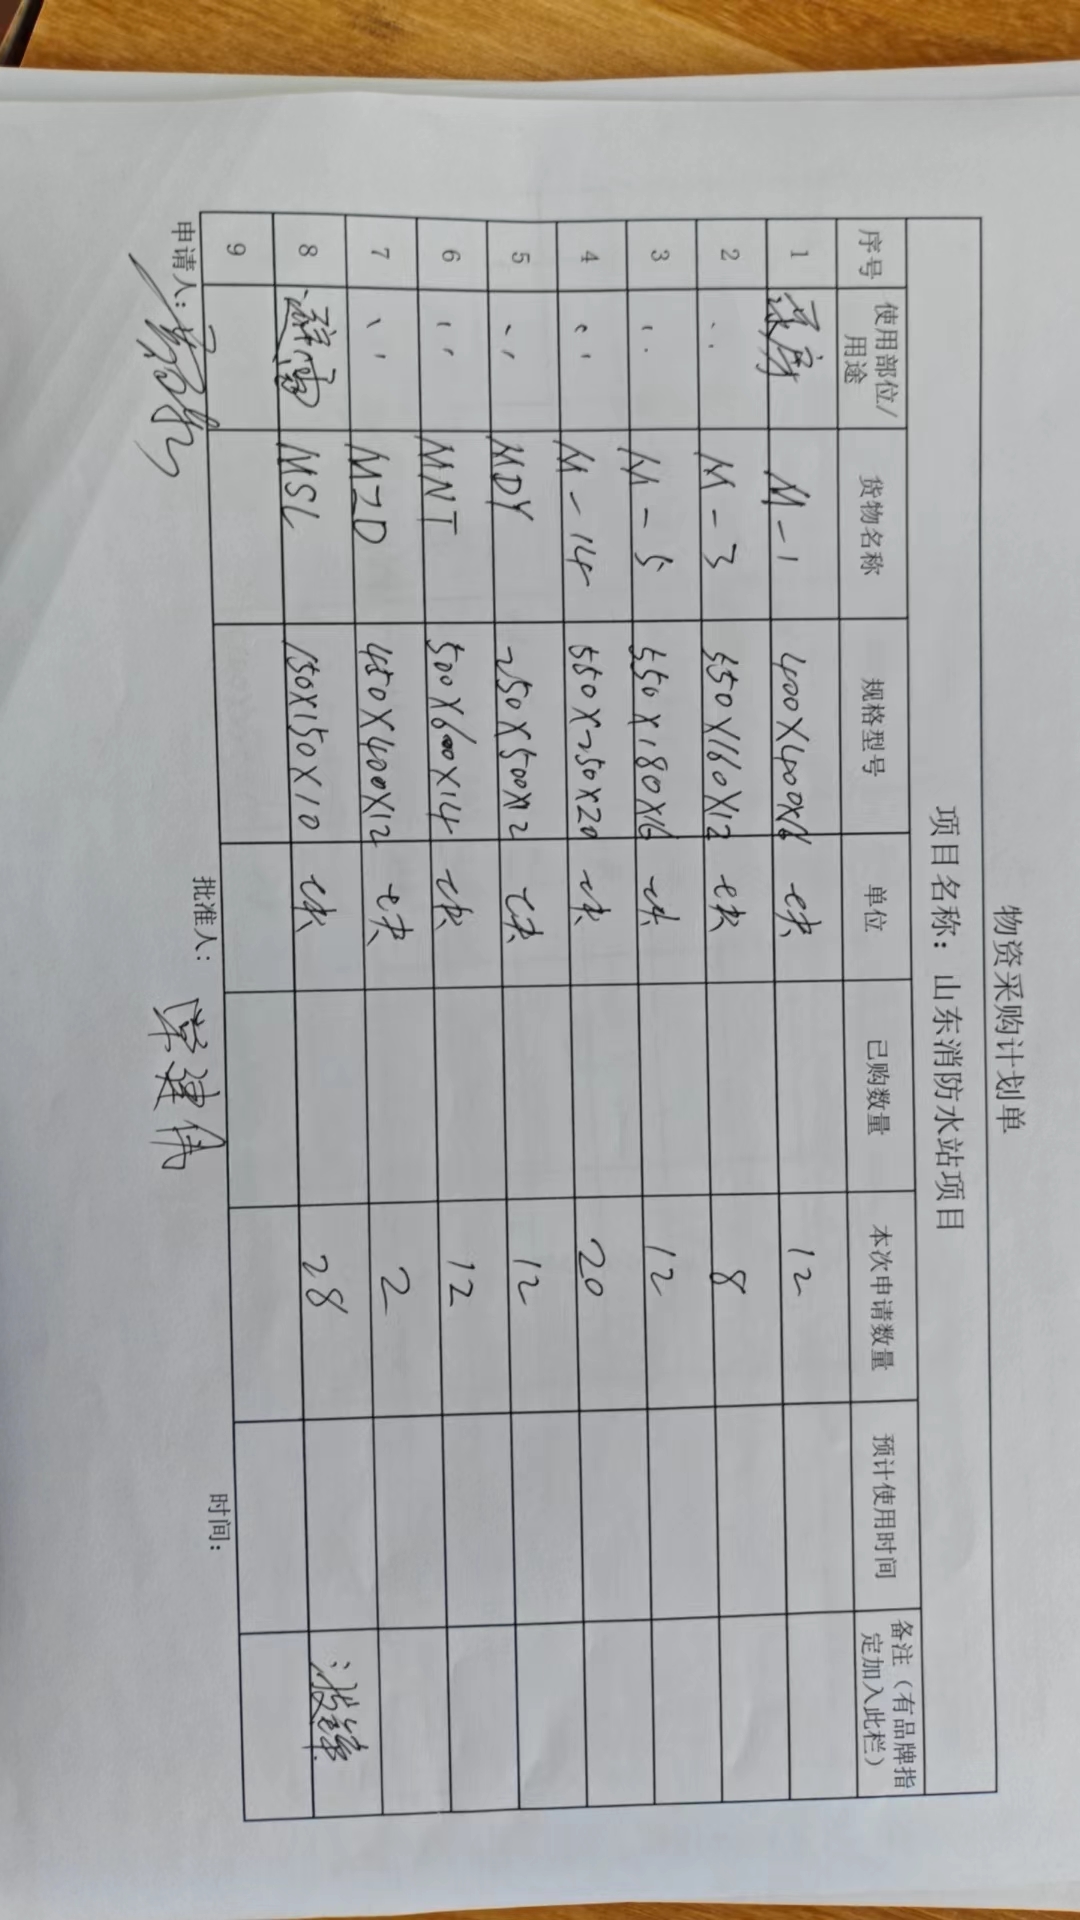 物资采购计划单
项目名称：山东消防水站项目
序号 使用部位/用途 货物名称 规格型号 单位 已购数量 本次申请数量 预计使用时间 备注（有品牌指定加入此栏）
1 M-1 400X400X16 块 12
2 〃 M-3 550X160X12 块 8
3 〃 M-5 550X180X16 块 12
4 〃 M-14 550X250X20 块 20
5 〃 MDY 250X500X12 块 12
6 〃 MNT 500X600X14 块 12
7 〃 MJD 450X400X12 块 2
8 MSL 150X150X10 块 28 渡锌
9
申请人： 批准人： 时间：